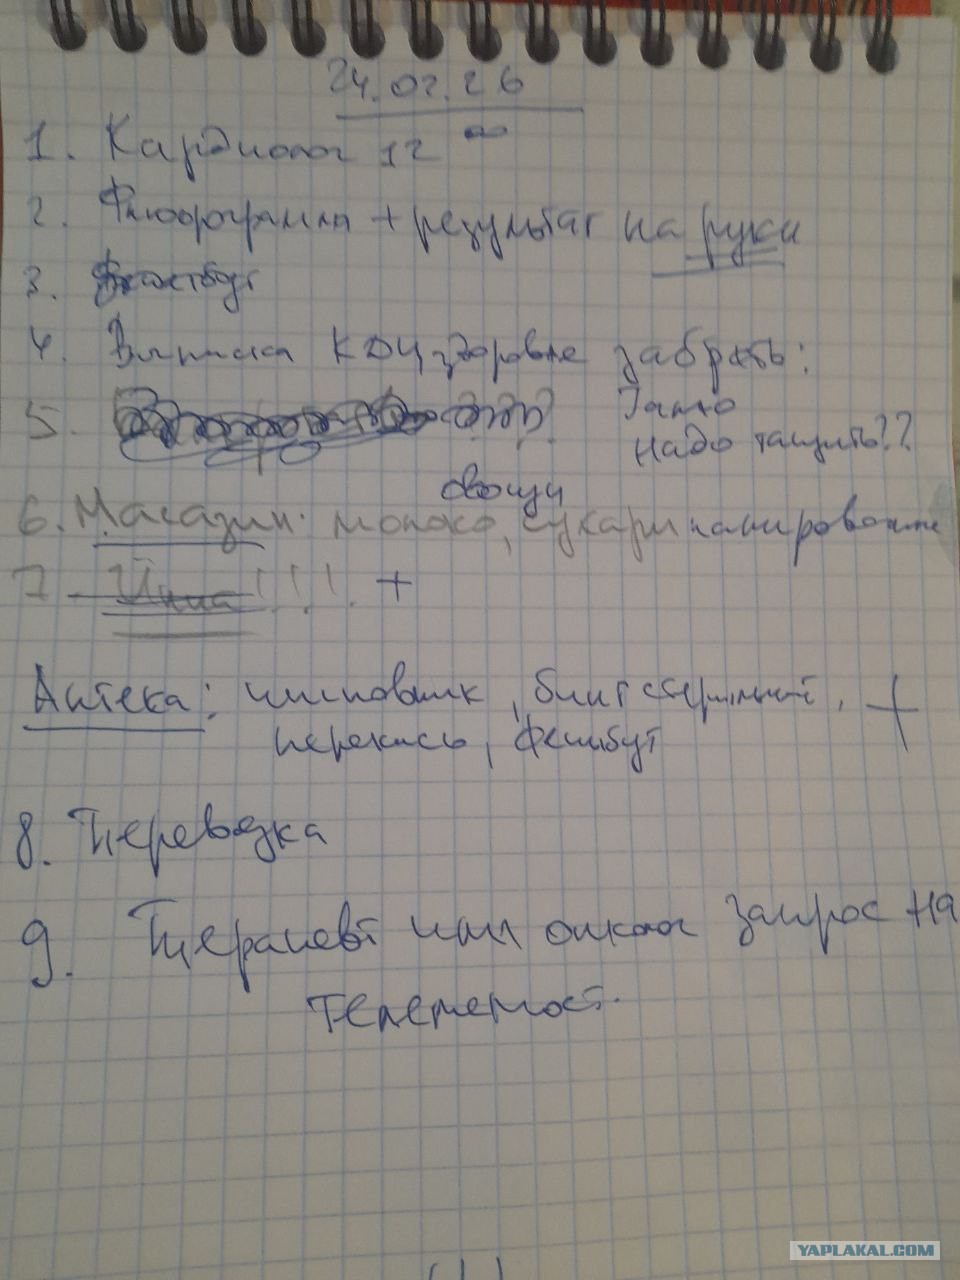 24.02.26
1. Кардиолог 12 00
2. Флюорограмма + результат на руки
3.
4. Выписка КДЦ здоровье забрать:
5. Гало
надо тащить??
овощи
6. Магазин: молоко, сухари панировочные
7. !!! +
Аптека: шиповник, бинт стерильный, +
перекись, фенибут
8. Перевозка
9. Терапевт или онколог запрос на
Телемост.
YAPLAKAL.COM